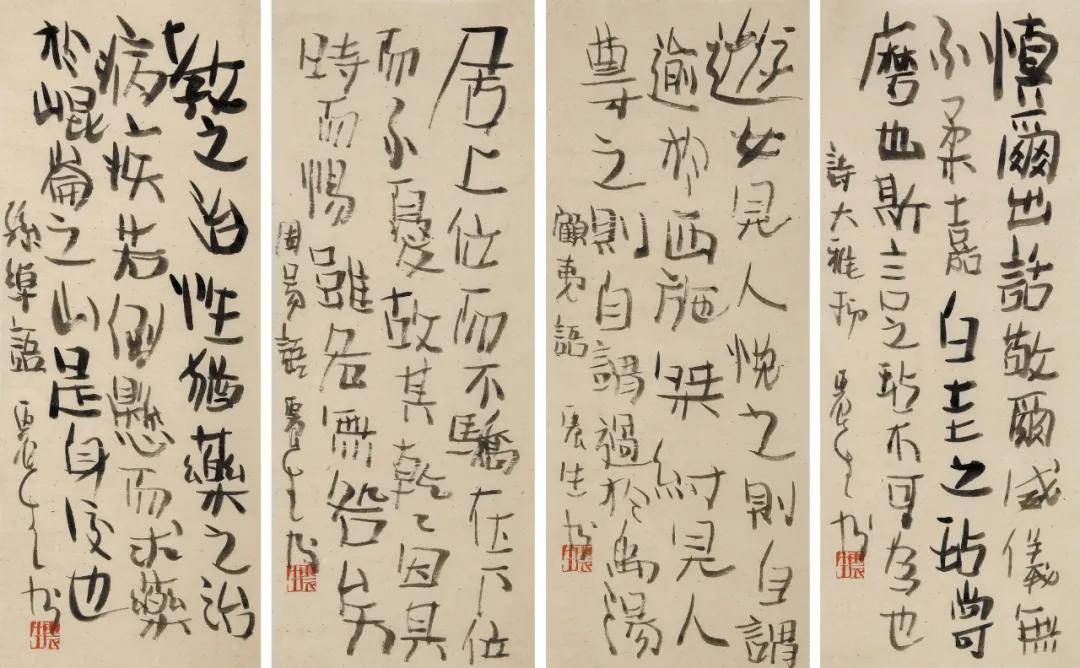 慎爾出話敬爾威儀無
不柔嘉白圭之玷尚可
磨也斯言之玷不可為也
詩大雅抑 晨生书
晨生
遊女見人悅之則自謂
逾於西施桀紂見人
尊之則自謂過於禹湯
顧夷語 晨生书
晨生
居上位而不驕在下位
而不憂故其乾〻因其
時而惕雖危無咎矣
周易語 晨生书
晨生
教之治性猶藥之治
病〻疾若倒懸而求藥
於崐崙之山是身後也
孫綽語 晨生书
晨生